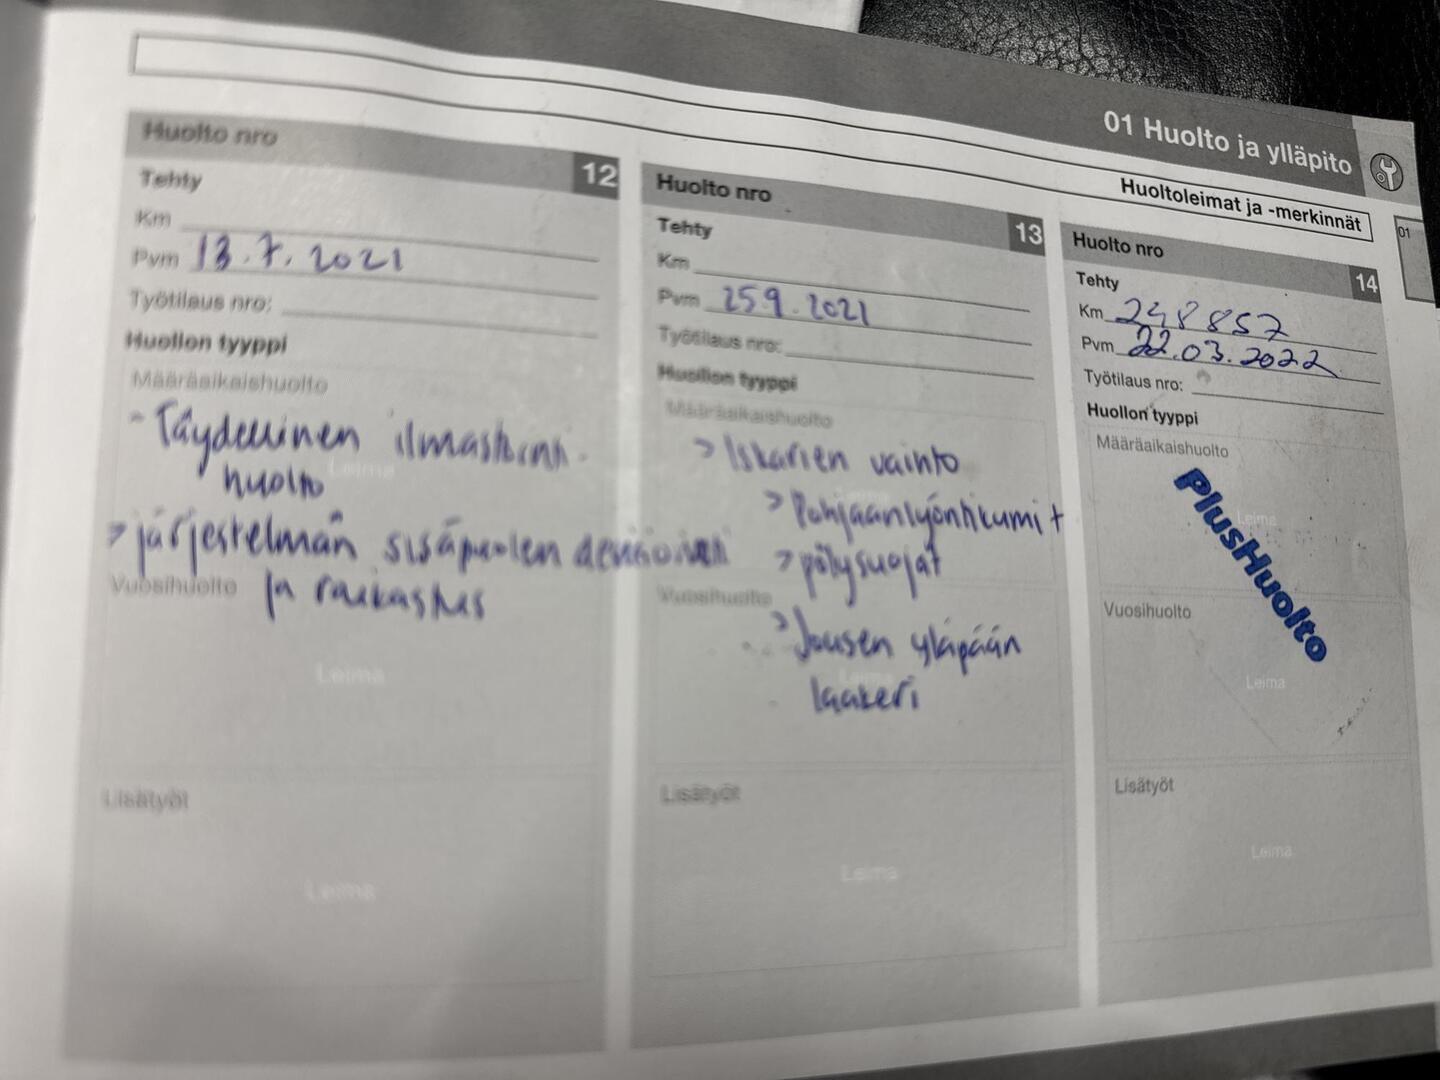 01 Huolto ja ylläpito
Huoltoleimat ja -merkinnät
01
Huolto nro 12
Tehty
Km
Pvm 13.7.2021
Työtilaus nro:
Huollon tyyppi
Määräaikaishuolto
- Täydellinen ilmastoinn.
huolto
Leima
> järjestelmän sisäpuolen desinfiointi
Vuosihuolto
ja raikastus
Leima
Lisätyöt
Leima
Huolto nro 13
Tehty
Km
Pvm 25.9.2021
Työtilaus nro:
Huollon tyyppi
Määräaikaishuolto
> Iskarien vaihto
> Pohjaanlyöntikumit
> pölysuojat
Vuosihuolto
> Jousen yläpään
laakeri
Lisätyöt
Leima
Huolto nro 14
Tehty
Km 248857
Pvm 22.03.2022
Työtilaus nro:
Huollon tyyppi
Määräaikaishuolto
Leima
PlusHuolto
Vuosihuolto
Leima
Lisätyöt
Leima